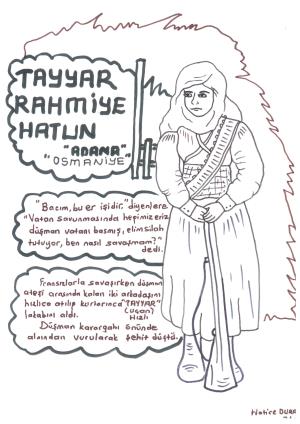 TAYYAR
RAHMİYE
HATUN
"ADANA"
"OSMANİYE"
"Bacım, bu er işidir." diyenlere
"Vatan savunmasında hepimiz eriz
düşman vatanı basmış, elim silah
tutuyor, ben nasıl savaşmam?"
dedi.
Fransızlarla savaşırken düşman
ateşi arasında kalan iki arkadaşını
hızlıca atılıp kurtarınca "TAYYAR"
(uçan)
lakabını aldı. Hızlı
Düşman karargahı önünde
alnından vurularak şehit düştü.
Hatice